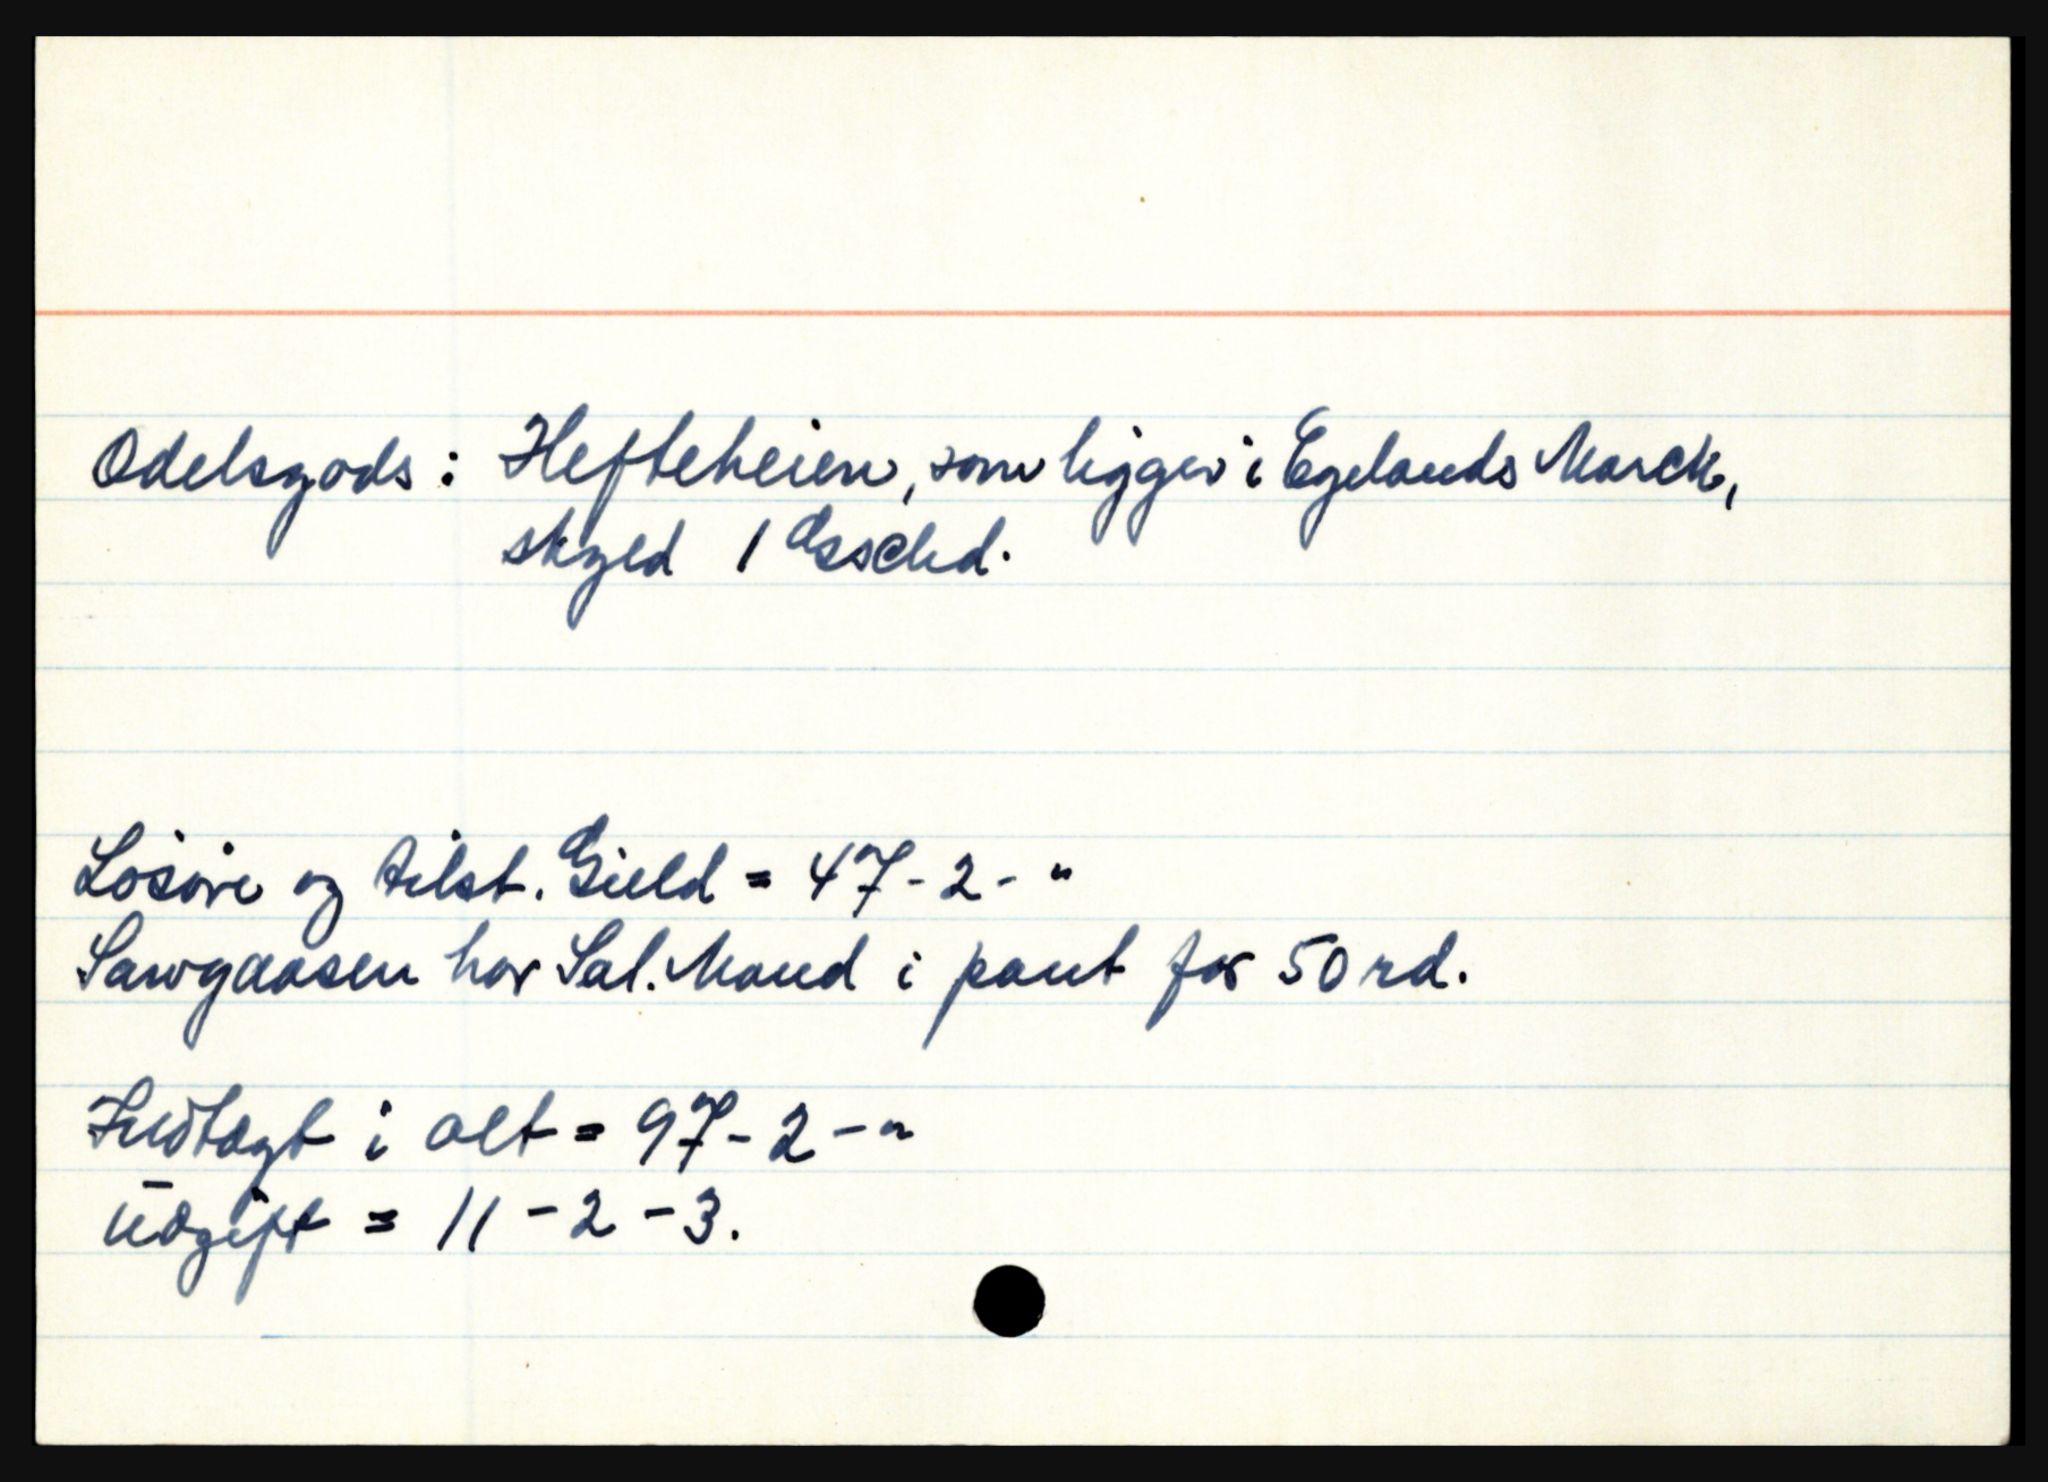 Odelsgods: Hefteheien, som ligger i Egelands Marck,
skyld 1 Gsschd.
Løsøre og tilst. Gield = 47-2-"
Sawgaasen har Sal. Mand i pant for 50 rd.
Indtægt i alt = 97-2-"
Udgift = 11-2-3.